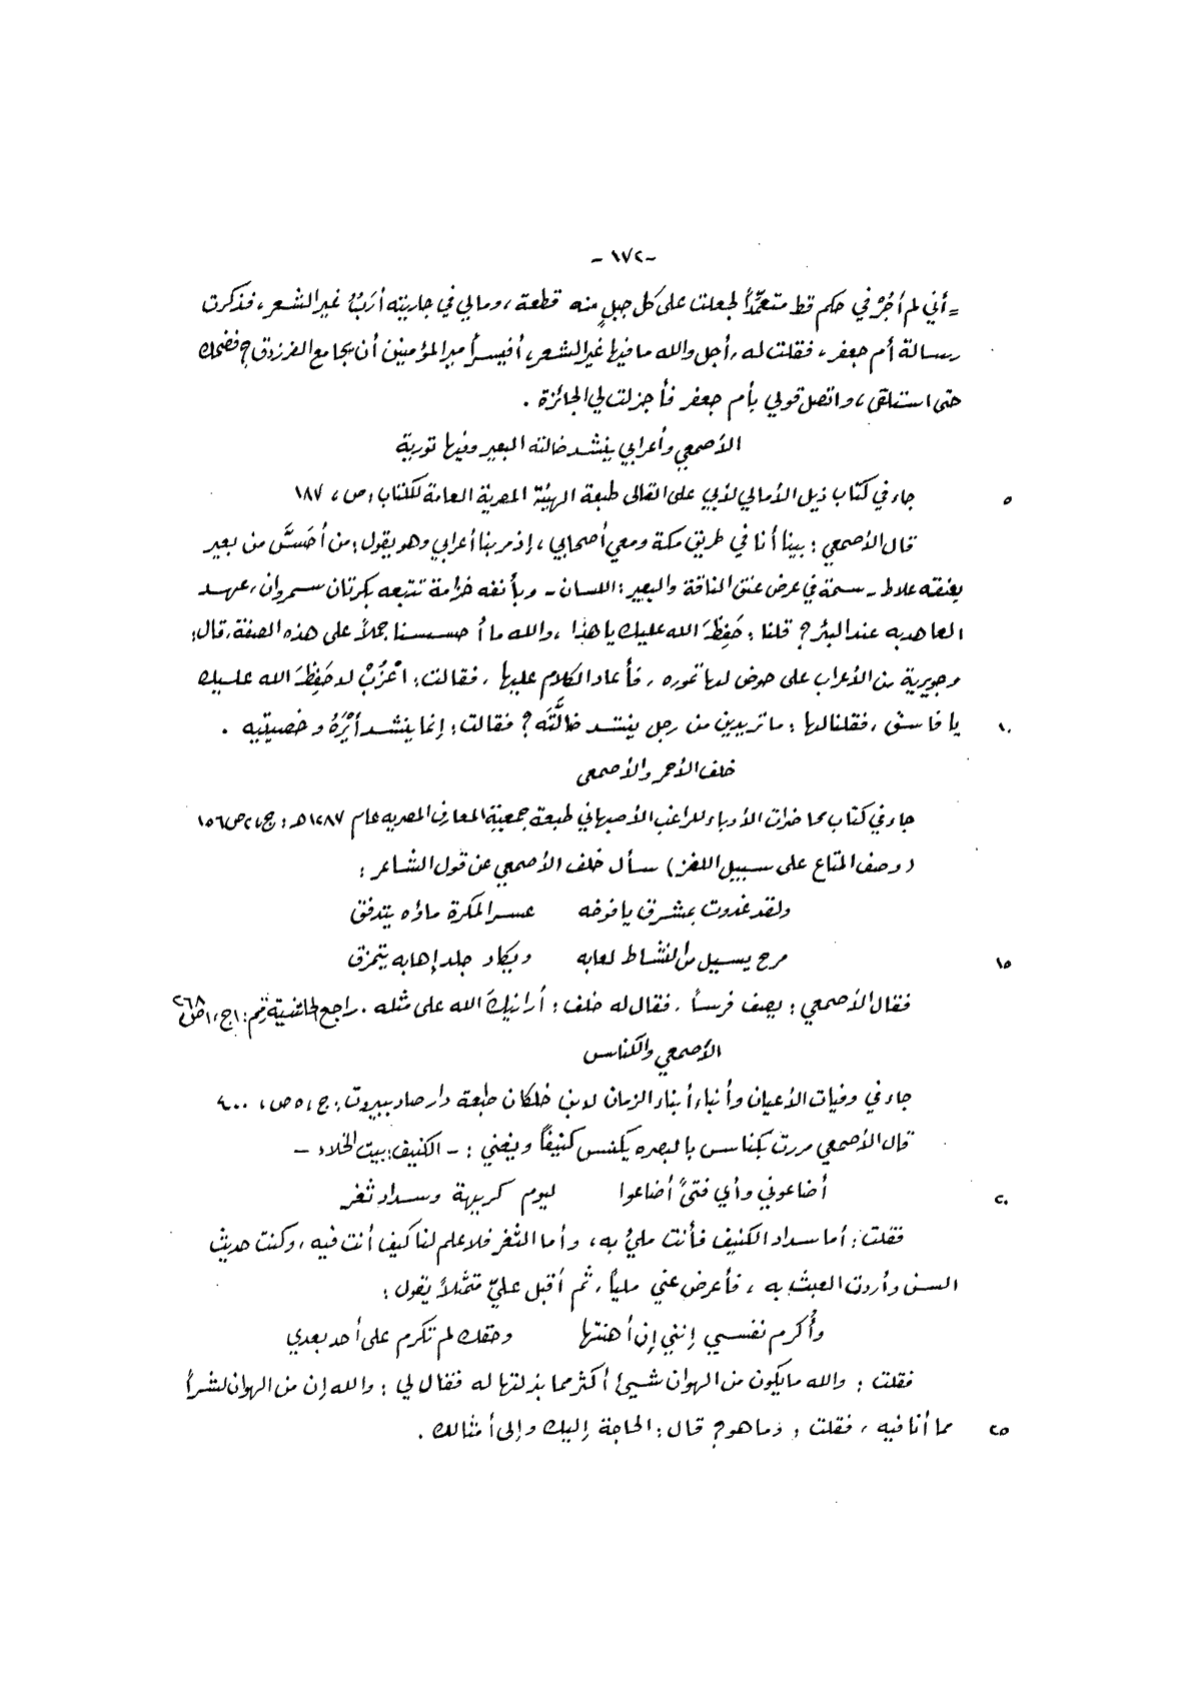 -١٧٢-
= أني لم أجُرْ في حكم قط متعمِّداً لجعلت على كل جبلٍ منه قطعة، ومالي في جاريته أرَبٌ غير الشعر، فذكرت
رسالة أم جعفر، فقلت له، أجل والله ما فيها غير الشعر، أفيسرُّ أمير المؤمنين أن يجامع الفرزدق؟ فضحك
حتى استلقى، واتصل قولي بأم جعفر فأجزلت لي الجائزة .
الأصمعي وأعرابي ينشد ضالته البعير وفيها تورية
٥ جاء في كتاب ذيل الأمالي لأبي علي القالى طبعة الهيئة المصرية العامة للكتاب، ص، ١٨٧
قال الأصمعي : بينا أنا في طريق مكة ومعي أصحابي، إذ مر بنا أعرابي وهو يقول: من أحَسَّ من بعير
بعنقه علاط - سمة في عرض عنق الناقة والبعير: اللسان - وبأنفه خزامة تتبعه بكرتان سمروان، عهد
العاهد به عند البئر؟ قلنا : حَفِظَ الله عليك يا هذا ، والله ما أحسسنا جملاً على هذه الصفة، قال:
وجويرية من الأعراب على حوض لها تموره، فأعاد الكلام عليها، فقالت: اعْزُبْ لا حَفِظَ الله عليك
١٠ يا فاسق، فقلنا لها : ما تريدين من رجل ينشد ضالَّتَه؟ فقالت: إنما ينشد أَيْرَهُ وخصيتيه .
خلف الأحمر والأصمعى
جاء في كتاب محاضرات الأدباء للراغب الأصبهاني طبعة جمعية المعارف المصريه عام ١٢٨٧هـ: ج،٢ص١٥٦
(وصف المتاع على سبيل اللغز) سأل خلف الأصمعي عن قول الشاعر :
ولقد غدوت بمشرق يافوخه عسر المكرة ماؤه يتدفق
١٥ مرح يسيل من النشاط لعابه ويكاد جلد إهابه يتمزق
فقال الأصمعي : يصف فرساً، فقال له خلف : أرانيك الله على مثله . راجع الحاشية رقم:١ج،١ص٢٦٨
الأصمعي والكناس
جاء في وفيات الأعيان وأنباء أبناء الزمان لابن خلكان طبعة دار صادر ببيروت: ج،٥ص، ٤٠٠
قال الأصمعي مررت بكناس بالبصره يكنس كنيفاً ويغني : - الكنيف: بيت الخلاء -
٢٠ أضاعوني وأي فتىً أضاعوا ليوم كريهة وسداد ثغر
فقلت: أما سداد الكنيف فأنت مليءٌ به، وأما الثغر فلا علم لنا كيف أنت فيه، وكنت حديث
السن وأردت العبث به ، فأعرض عني ملياً، ثم أقبل عليّ متمثلاً يقول :
وأُكرم نفسي إنني إن أهنتها وحقك لم تكرم على أحد بعدي
فقلت : والله ما يكون من الهوان شيئ أكثر مما بذلتها له فقال لي : والله إن من الهوان لشراً
٢٥ مما أنا فيه ، فقلت : وما هو؟ قال : الحاجة إليك وإلى أمثالك .